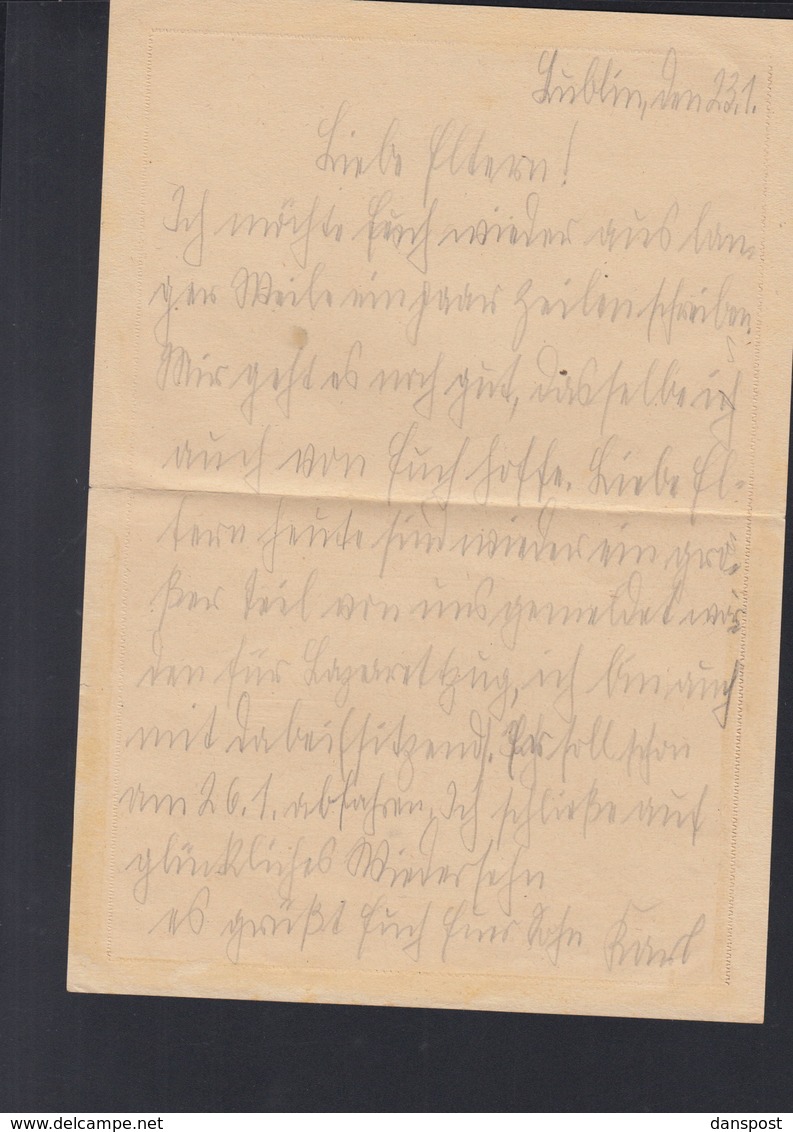 Lublin, den 23.1.
Liebe Eltern!
Ich möchte Euch wieder aus lan-
ger Weile ein paar Zeilen schreiben.
Mir geht es noch gut, dasselbe ich
auch von Euch hoffe. Liebe El-
tern heute sind wieder ein gro-
ßer Teil von uns gemeldet wor
den für Lazarettzug, ich bin auch
mit dabei (sitzend). Er soll schon
am 26.1. abfahren. Ich schließe auf
glückliches Wiedersehn
es grüßt Euch Euer Sohn Karl
danspost